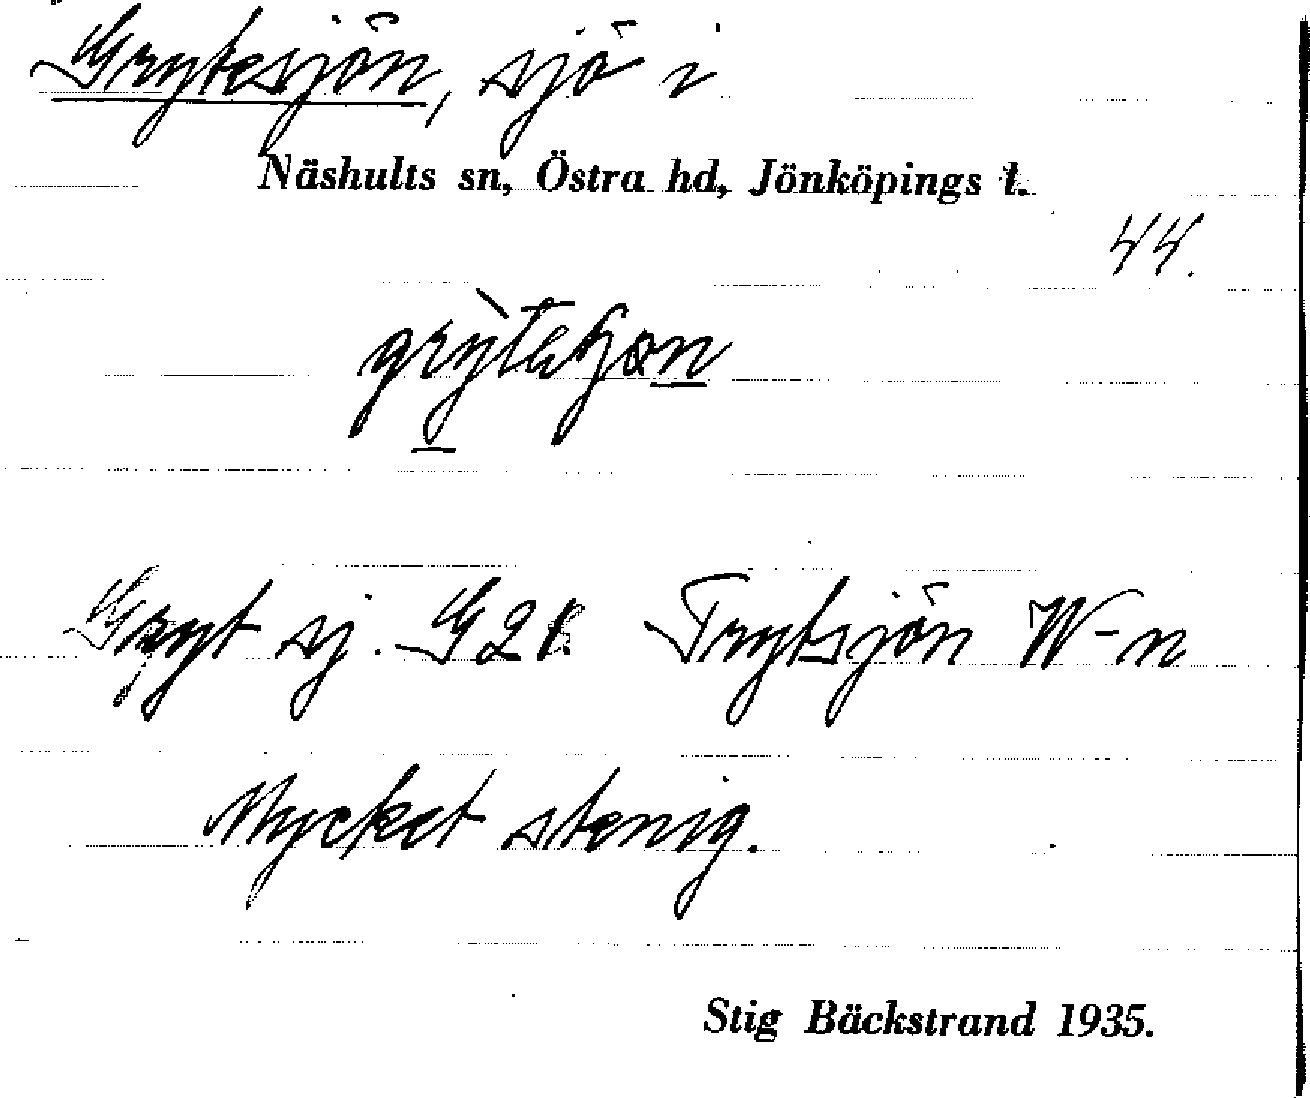 Grytesjön, sjö i
Näshults sn, Östra hd, Jönköpings l.
44.
Gryt sj. G28 Trytsjön W-n
Mycket stenig.
Stig Bäckstrand 1935.